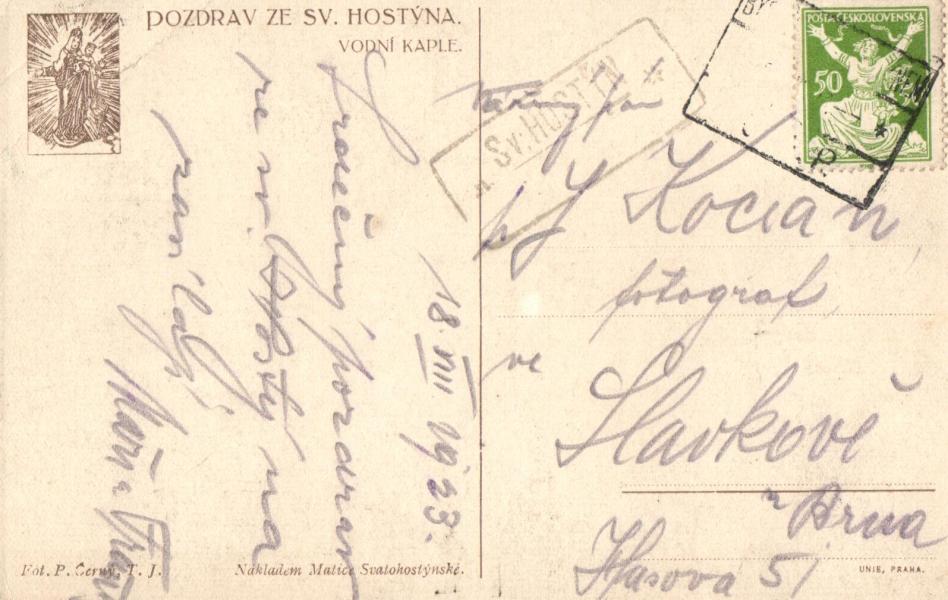 POZDRAV ZE SV. HOSTÝNA.
VODNÍ KAPLE.
18. VIII 1923.
Srdečný pozdrav
ze sv. Hostýna
zasílají
Fot. P. Černý, T. J.
Nákladem Matice Svatohostýnské.
SV. HOSTÝN
POŠTA ČESKOSLOVENSKÁ
50
Vážený pan
J Kocian
fotograf
ve
Slavkově
u Brna
Husova 51
UNIE, PRAHA.